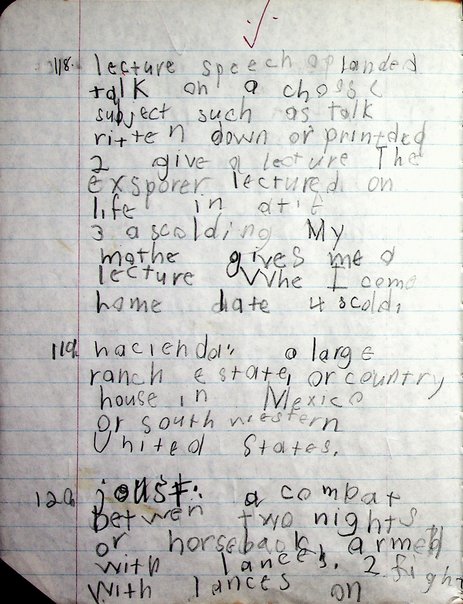 118. lecture speech a planded
talk on a chosse
subject such as talk
ritten down or printded
2 give a lecture The
exsporer lectured on
life in
3 a scolding My
mothe gives me a
lecture Whe I come
home late 4 scold,
119. hacienda: a large
ranch estate, or country
house in Mexico
or south western
United States.
120. joust: a combat
betwen two nights
or horseback armed
with lances. 2 fight
with lances on